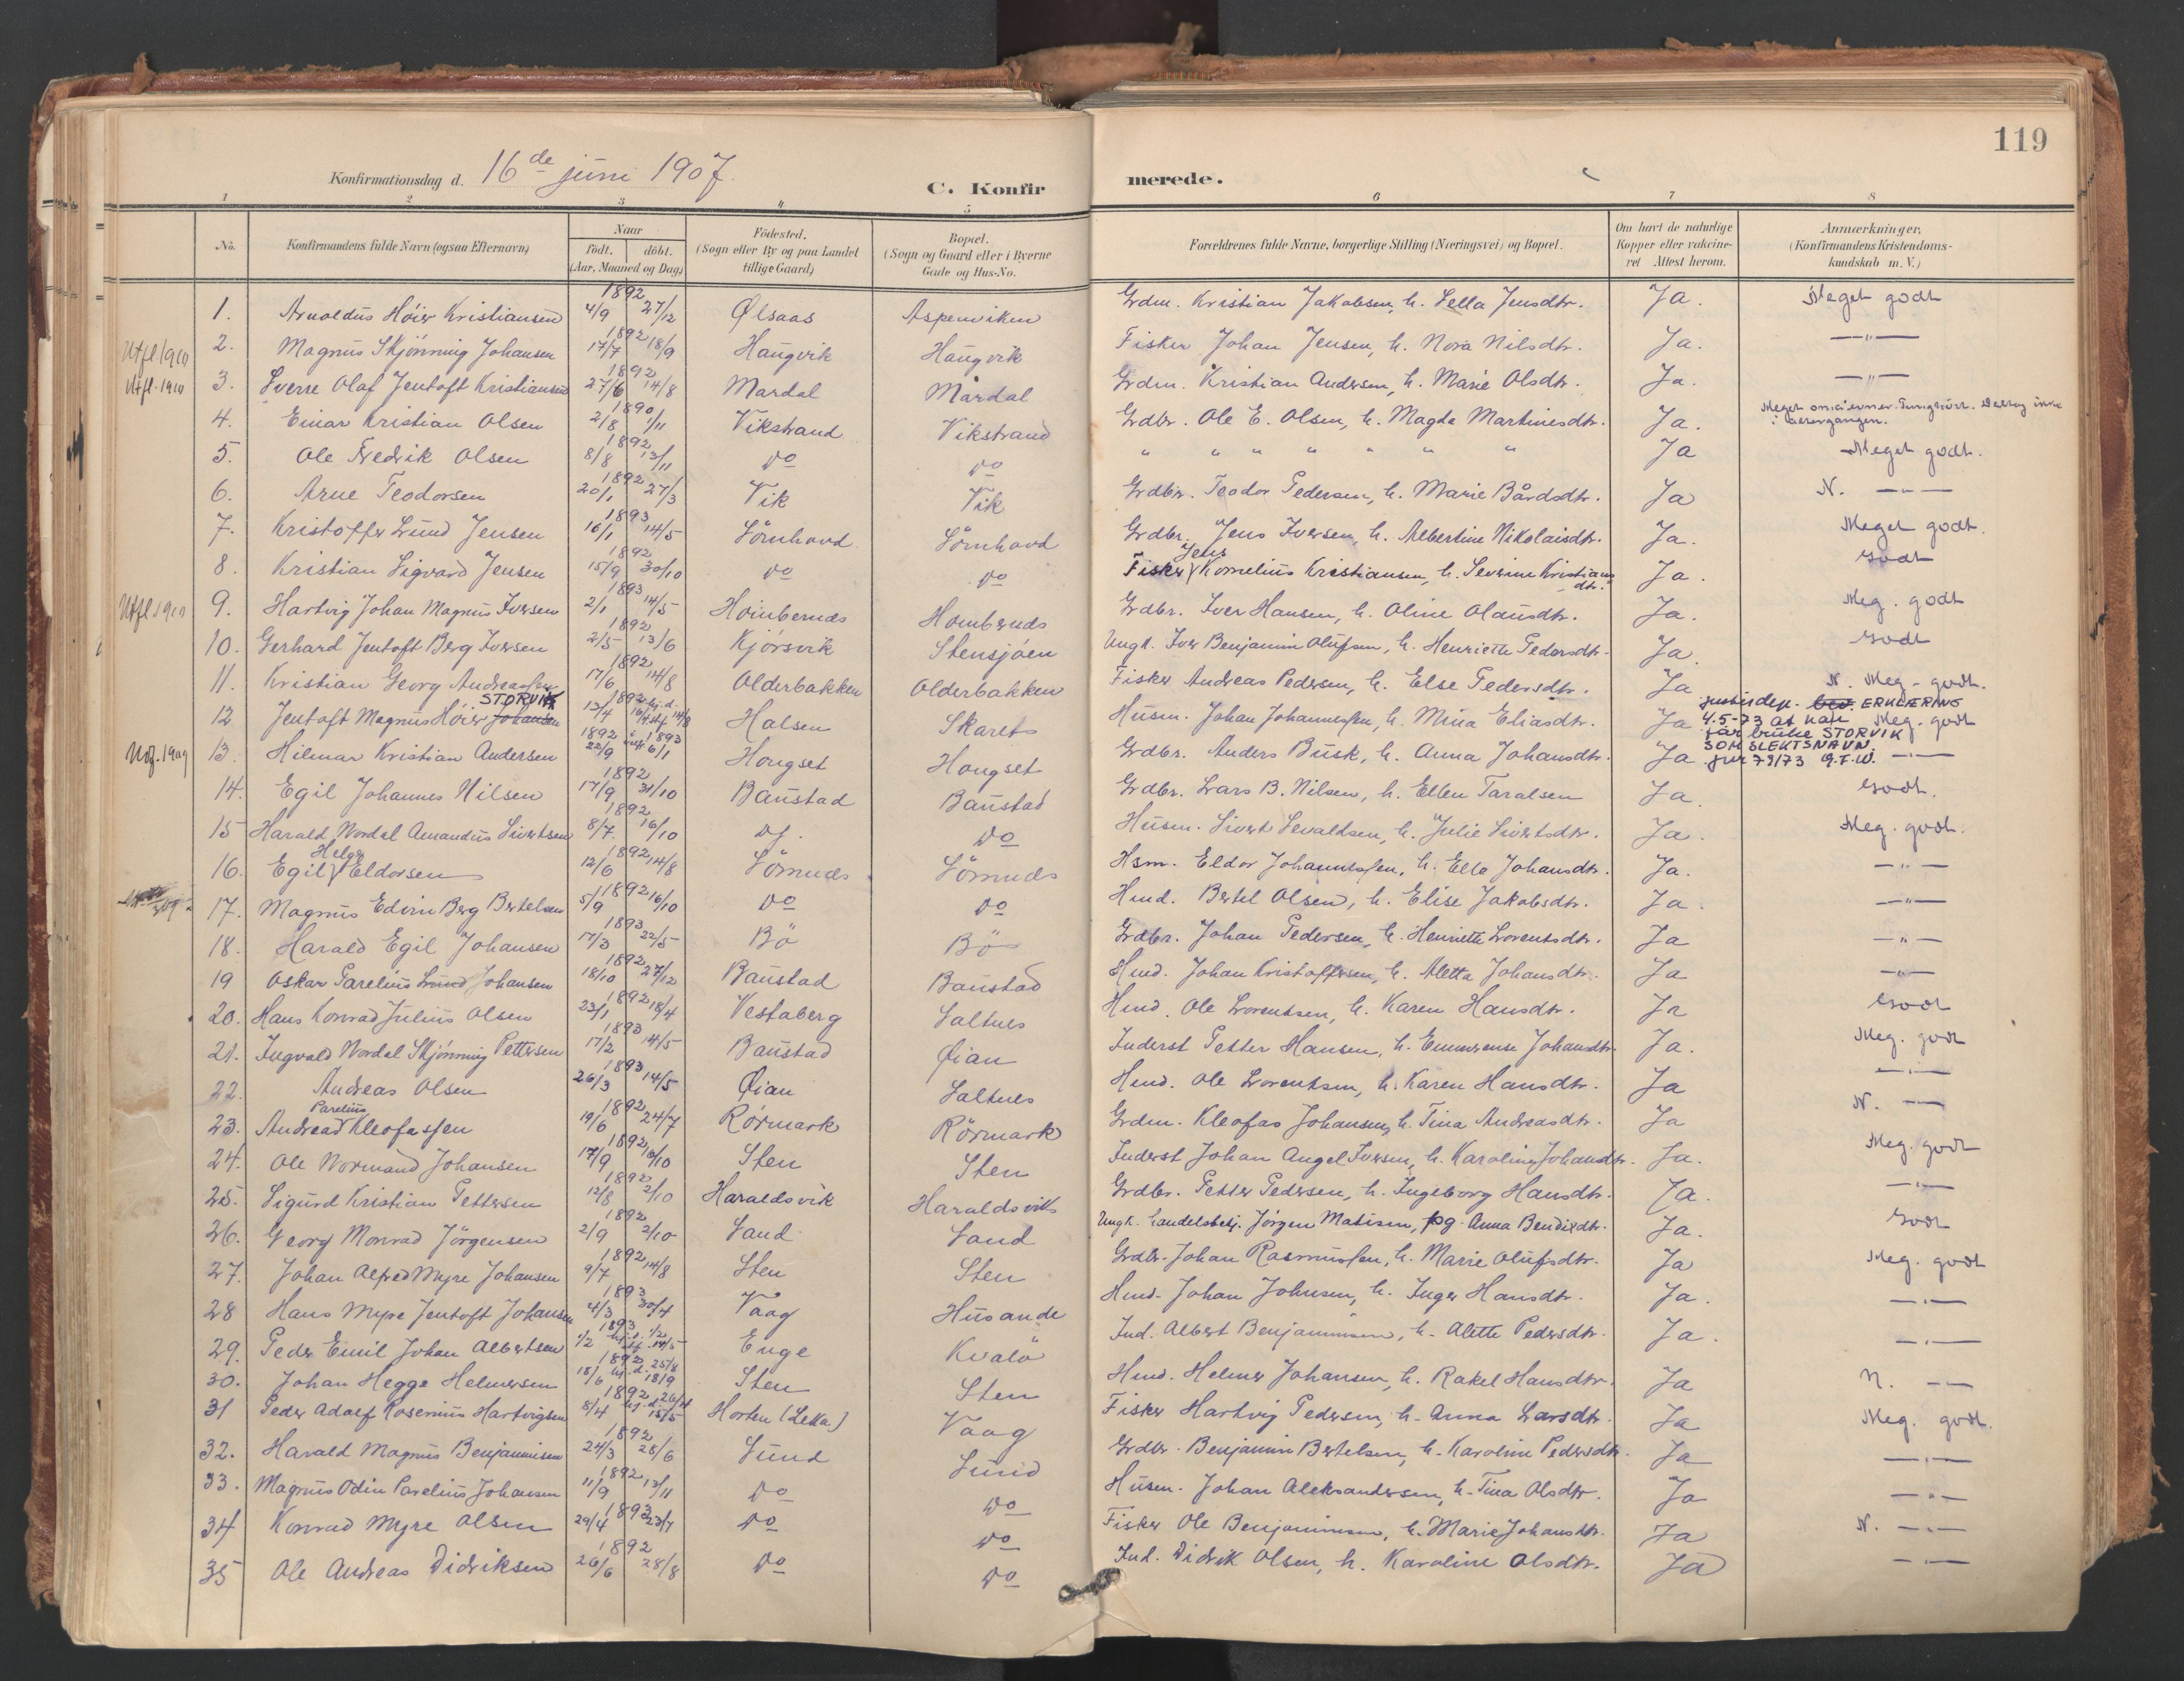 119
Konfirmationsdag d. 16de juni 1907.
C. Konfirmerede.
1 2 3 4 5 6 7 8
No. Konfirmandens fulde Navn (ogsaa Efternavn) Naar født. døbt. (Aar, Maaned og Dag) Fødested. (Sogn eller By og paa Landet tillige Gaard) Bopæl. (Sogn og Gaard eller i Byerne Gade og Hus-No. Forældrenes fulde Navne, borgerlige Stilling (Næringsvei) og Bopæl. Om havt de naturlige Kopper eller vakcineret Attest herom. Anmærkninger, (Konfirmandens Kristendomskundskab m. V.)
1. Arnoldus Höier Kristiansen 1892 4/9 27/12 Ølsaas Aspenviken Grdm. Kristian Jakobsen, h. Sella Jensdtr. Ja. Meget godt
Utfl 1910 2. Magnus Skjönning Johansen 1892 17/7 18/9 Haugvik Haugvik Fisker Johan Jensen, h. Nora Nilsdtr. Ja. —"—
Utfl. 1910 3. Sverre Olaf Jentoft Kristiansen 1892 27/6 14/8 Mardal Mårdal Grdm. Kristian Andersen, h. Marie Olsdtr. Ja. —"—
4. Einar Kristian Olsen 1890 2/8 1/11 Vikstrand Vikstrand Grdbr. Ole E. Olsen, h. Magda Martinesdtr. Ja. Meget små evner. Tunghört. Deltog ikke i
5. Ole Fredrik Olsen 1892 8/8 13/11 do do " " " " " " " Ja Meget godt.
6. Arne Teodorsen 1892 20/1 27/3 Vik Vik Grdbr. Teodor Pedersen, h. Marie Bårdsdtr. Ja N. —"—
7. Kristoffer Lund Jensen 1893 16/1 14/5 Sörnhovd Sörnhovd Grdbr. Jens Iversen, h. Albertine Nikolaisdtr. Ja. Meget godt
8. Kristian Sigvard Jensen 1892 15/9 30/10 do do Fisker Jens Kornelius Kristiansen, h. Severine Kristiansdtr. Ja. Godt
Utfl 1910 9. Hartvig Johan Magnus Iversen 1893 2/1 14/5 Hombernes Hombernes Grdbr. Iver Hansen, h. Oline Olausdtr. Ja. Meg. godt
10. Gerhard Jentoft Berg Iversen 1892 2/5 13/6 Kjörsvik Stensjöen Ungk. Iver Benjamin Olufsen, h. Henriette Pedersdtr. Ja. Godt
11. Kristian Georg Andreassen 1892 17/6 14/8 Olderbakken Olderbakken Fisker Andreas Pedersen, h. Else Pedersdtr. Ja N. Meg. godt.
12 Jentoft Magnus Höier Johansen STORVIK 1892 13/4 hj.d. 16/4 stf 14/8 Halsen Skarets Husm. Johan Johannessen, h. Mina Eliasdtr. Ja Meg. godt
Justisdep. bev. ERKLÆRING 4.5-73 at han får bruke STORVIK SOM SLEKTSNAVN. jnr 79/73 G.F.W.
1909 13. Hilmar Kristian Andersen 1892 22/9 1893 6/1 Hongset Hongset Grdbr. Anders Busk, h. Anna Johansdtr. Ja —"—
14. Egil Johannes Nilsen 1892 17/9 31/10 Baustad Baustad Grdbr. Lars B. Nilsen, h. Ellen Taralsen Ja. Godt.
15 Harald Nordal Amandus Sivertsen 1892 8/7 16/10 do. do Husm. Sivert Sevaldsen, h. Julie Sivertsdtr. Ja. Meg. godt.
16. Egil Helge Eldorsen 1892 12/6 14/8 Sörnnes Sörnnes Hsm. Eldor Johannessen, h. Ella Johansdtr. Ja. —"—
17. Magnus Edvin Berg Bertelsen 1892 5/9 16/10 do do Hmd. Bertel Olsen, h. Elise Jakobsdtr. Ja. —"—
18. Harald Egil Johansen 1893 17/3 22/5 Bö Bö Grdbr. Johan Pedersen, h. Henriette Lorentsdtr. Ja —"—
19 Oskar Parelius Lund Johansen 1892 18/10 27/12 Baustad Baustad Hmd. Johan Kristoffersen, h. Aletta Johansdtr. Ja —"—
20. Hans Konrad Julius Olsen 1892 23/1 18/4 Vestaberg Saltnes Hmd. Ole Lorentsen, h. Karen Hansdtr. Ja Godt
21. Ingvald Nordal Skjönning Pettersen 1893 17/2 14/5 Baustad Øian Inderst Petter Hansen, h. Emmerense Johansdtr. Ja. Meg. godt
22. Andreas Olsen 1893 26/3 14/5 Øian Saltnes Hmd. Ole Lorentsen, h. Karen Hansdtr. Ja —"—
23. Andreas Parelius Kleofassen 1892 19/6 24/7 Rörmark Rörmark Grdm. Kleofas Johansen, h. Tina Andreasdtr. Ja N. —"—
24. Ole Normand Johansen 1892 17/9 16/10 Sten Sten Inderst Johan Angel Iversen, h. Karoline Johansdtr. Ja. Meg. godt
25. Sigurd Kristian Pettersen 1892 12/8 2/10 Haraldsvik Haraldsvik Grdbr. Petter Pedersen, h. Ingeborg Hansdtr. Ja. —"—
26. Georg Monrad Jörgensen 1892 2/9 2/10 Sand Sand Ungk. handelsbetj. Jörgen Matisen, og Anna Bendixdtr. Ja. Godt
27. Johan Alfred Myre Johansen 1892 9/7 14/8 Sten Sten Grdbr. Johan Rasmussen, h. Marie Olufsdtr. Ja Meg. godt
28 Hans Myre Jentoft Johansen 1893 4/3 30/4 Vaag Husande Hmd. Johan Johnsen, h. Inger Hansdtr. Ja. —"—
29. Peder Emil Johan Albertsen 1893 1/2 hj.d. 1/2 stf. 14/5 Enge Kvalö Ind. Albert Benjaminsen, h. Alette Pedersdtr. Ja. —"—
30. Johan Hegge Helmersen 1892 18/6 hj.d. 25/8 18/9 Sten Sten Hmd. Helmer Johansen, h. Rakel Hansdtr. Ja N. —"—
31 Peder Adolf Rosenius Hartvigsen 1892 8/4 hj.d. 26/4 15/5 Horten (Leka) Vaag Fisker Hartvig Pedersen, h. Anna Larsdtr. Ja Meg. godt.
32. Harald Magnus Benjaminsen 1892 24/3 26/6 Sund Sund Grdbr. Benjamin Bertelsen, h. Karoline Pedersdtr. Ja —"—
33. Magnus Odin Parelius Johansen 1892 11/9 13/11 do do Husm. Johan Aleksandersen, h. Tina Olsdtr. Ja —"—
34 Konrad Myre Olsen 1893 29/4 23/7 do do Fisker Ole Benjaminsen, h. Marie Johansdtr. Ja N. —"—
35 Ole Andreas Didriksen 1892 26/6 28/8 do do Ind. Didrik Olsen, h. Karoline Olsdtr. Ja —"—